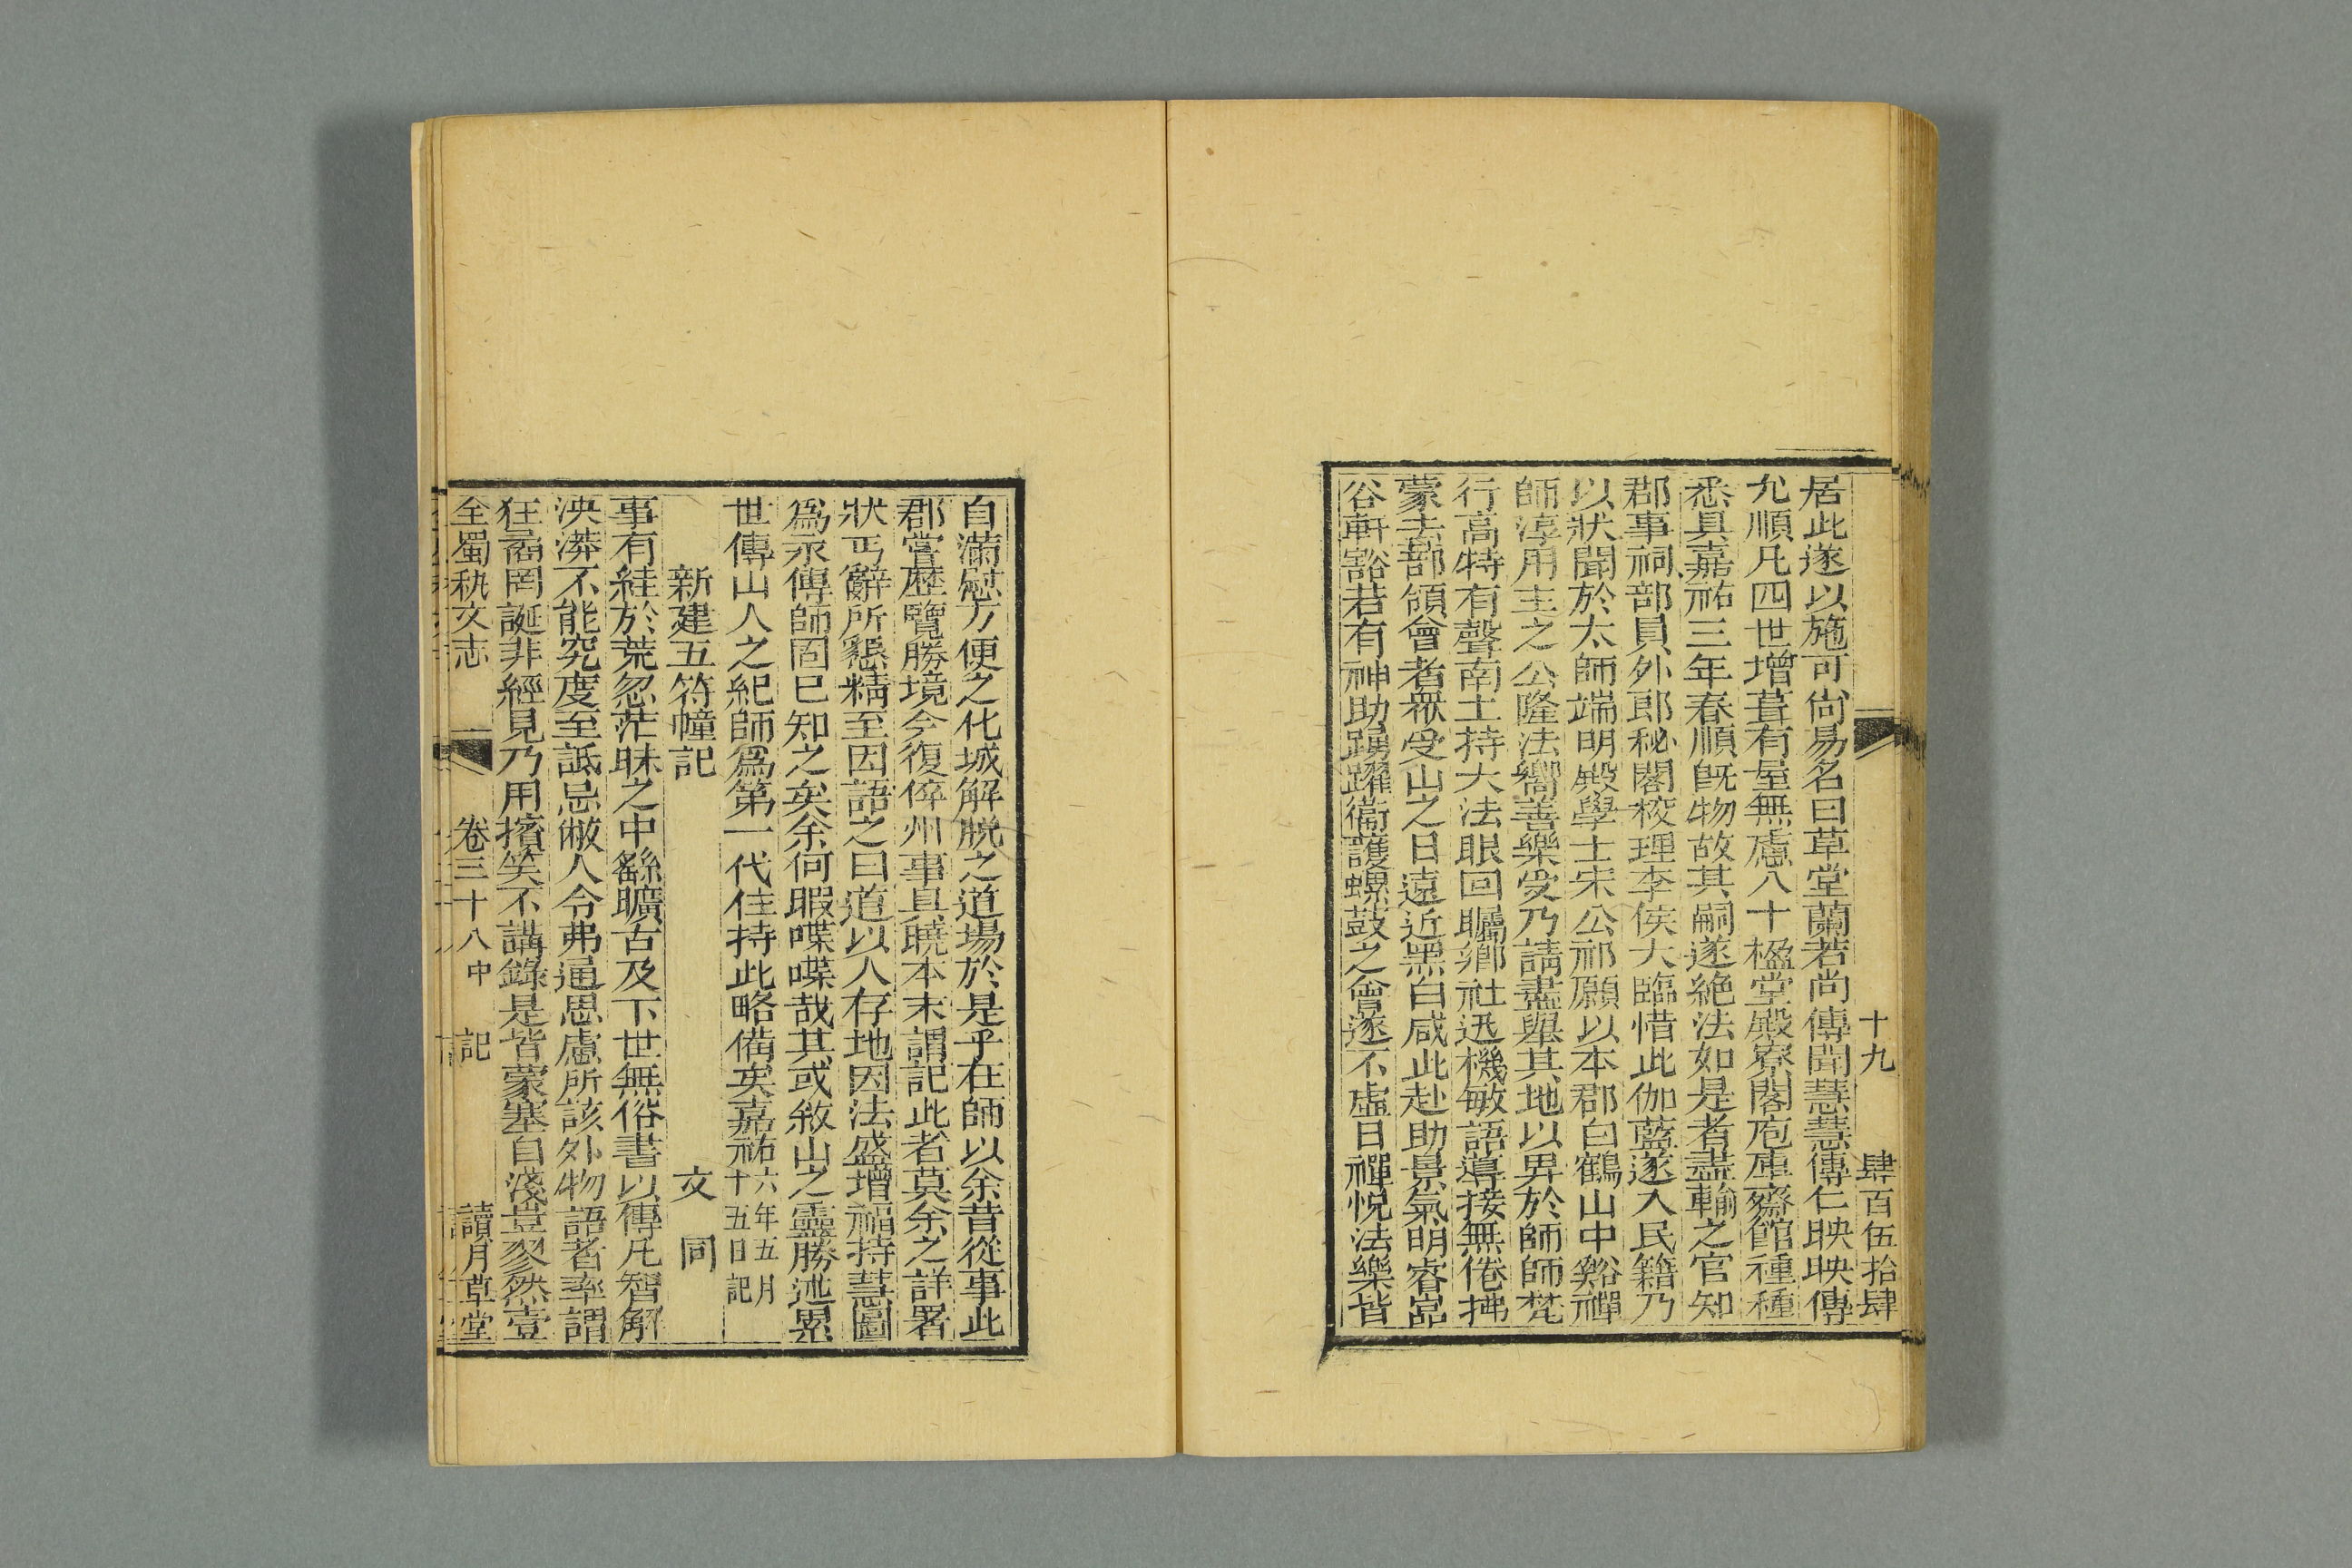 十九　肆百伍拾肆
居此遂以施可尙易名曰草堂蘭若尚傳聞慧慧傳仁映映傳
允順凡四世增葺有屋無慮八十楹堂殿寮閣庖庫齋館種種
悉具嘉祐三年春順旣物故其嗣遂絶法如是者盡輸之官知
郡事祠部員外郎秘閣校理李侯大臨惜此伽藍遂入民籍乃
以狀聞於太師端明殿學士宋公祁願以本郡白鶴山中谿禪
師淳用主之公隆法嚮善樂受乃請盡舉其地以畀於師師梵
行高特有聲南土持大法眼回矚鄉社迅機敏語導接無倦拂
蒙去蔀領會者衆受山之日遠近黑白咸此赴助景氣明睿嵓
谷軒豁若有神助踴躍衞護螺鼓之會遂不虛日禪悅法樂皆
自滿慰方便之化城解脫之道場於是乎在師以余昔從事此
郡嘗歷覽勝境今復倅州事具曉本末謂記此者莫余之詳署
狀丐辭所懇精至因語之曰道以人存地因法盛增福持慧圖
爲永傳師固已知之矣余何暇喋喋哉其或敘山之靈勝迹累
世傳山人之紀師爲第一代住持此略備矣嘉祐六年五月十五日記
新建五符幢記　文　同
事有絓於荒忽茫昧之中繇曠古及下世無俗書以傳凡智解
泱漭不能究度至詆忌敝人令弗通思慮所該外物語者率謂
狂矞罔誕非經見乃用擯笑不講錄是皆蒙塞自淺豈翏然壹
全蜀秇文志　卷三十八中　記　讀月草堂